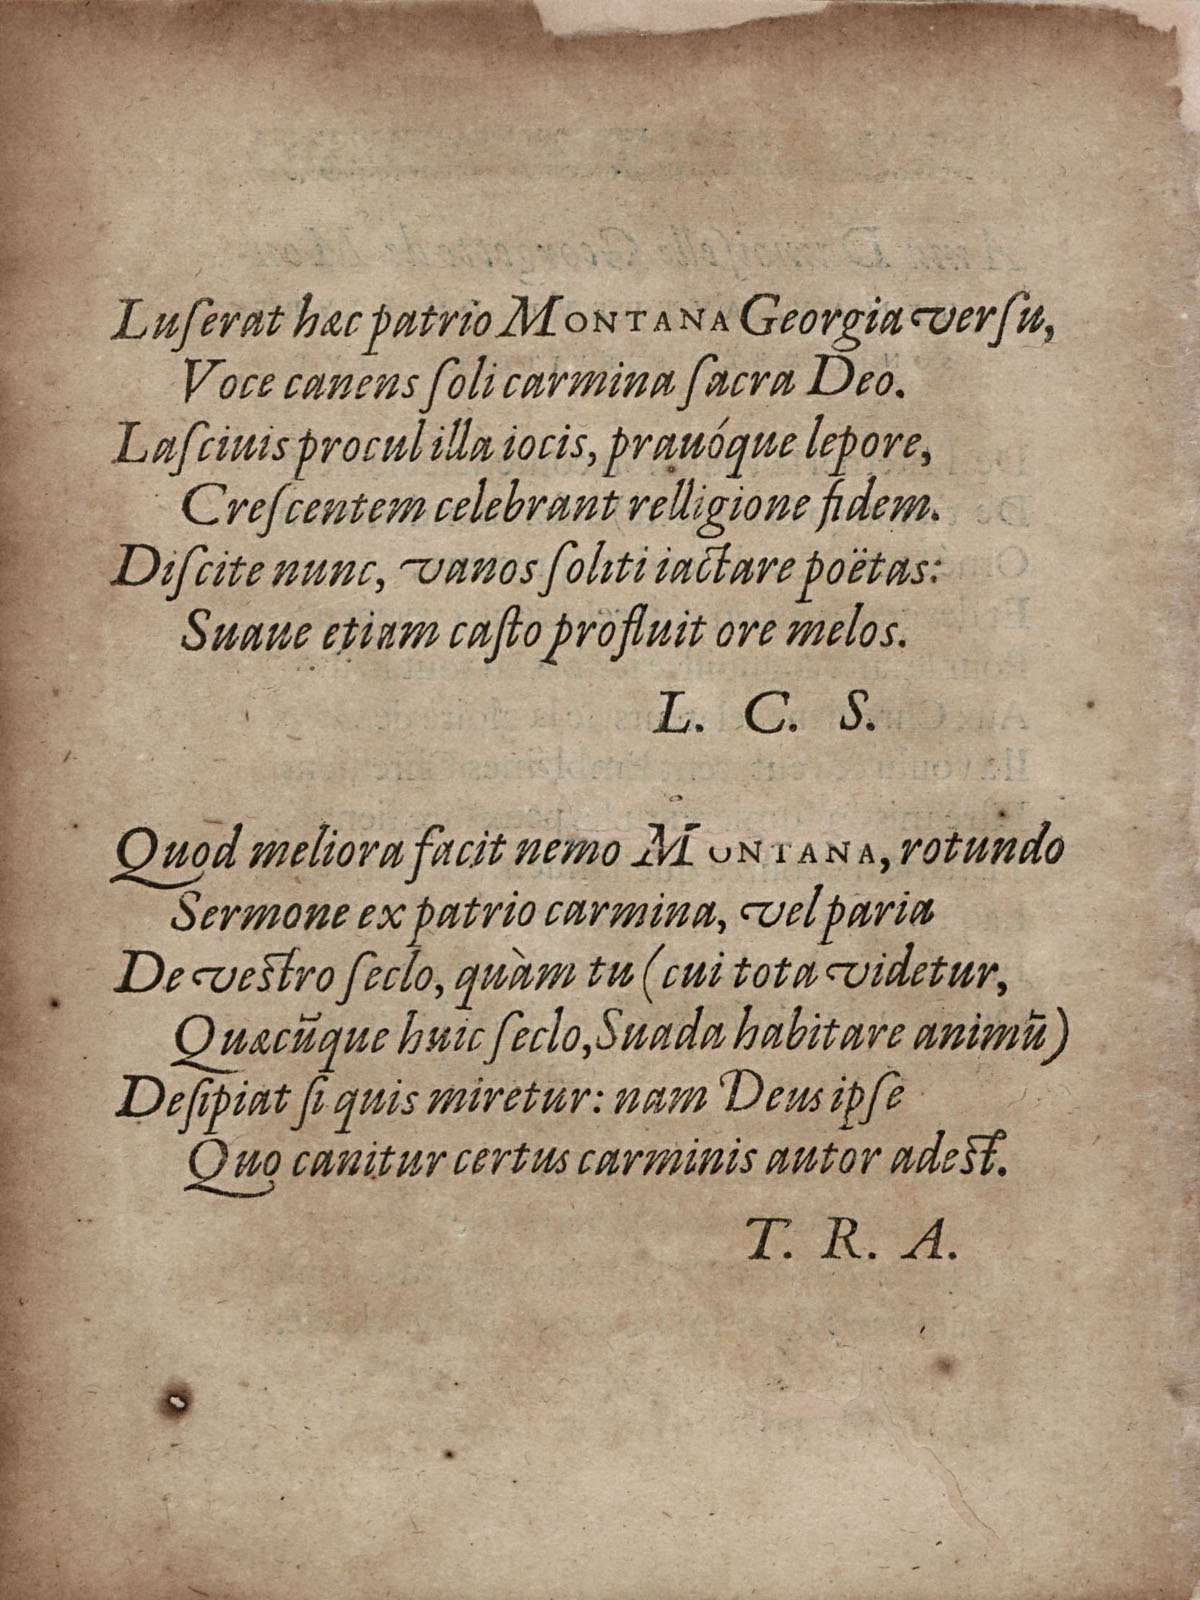 Luſerat hæc patrio MONTANA Georgia verſu,
Voce canens ſoli carmina ſacra Deo.
Laſciuis procul illa iocis, prauóque lepore,
Creſcentem celebrant relligione fidem.
Diſcite nunc, vanos ſoliti iactare poëtas:
Suaue etiam caſto profluit ore melos.
L. C. S.
Quod meliora facit nemo MONTANA, rotundo
Sermone ex patrio carmina, vel paria
De veſtro ſeclo, quàm tu (cui tota videtur,
Quæcũque huic ſeclo, Suada habitare animũ)
Deſipiat ſi quis miretur: nam Deus ipſe
Quo canitur certus carminis autor adeſt.
T. R. A.